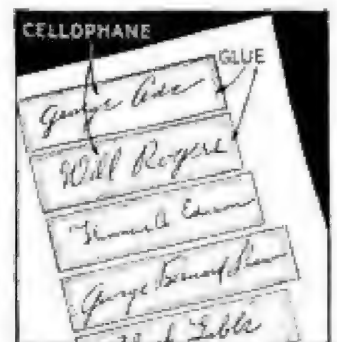 CELLOPHANE
GLUE
George Ade
Will Rogers
Thomas A Edison
George Bernard Shaw